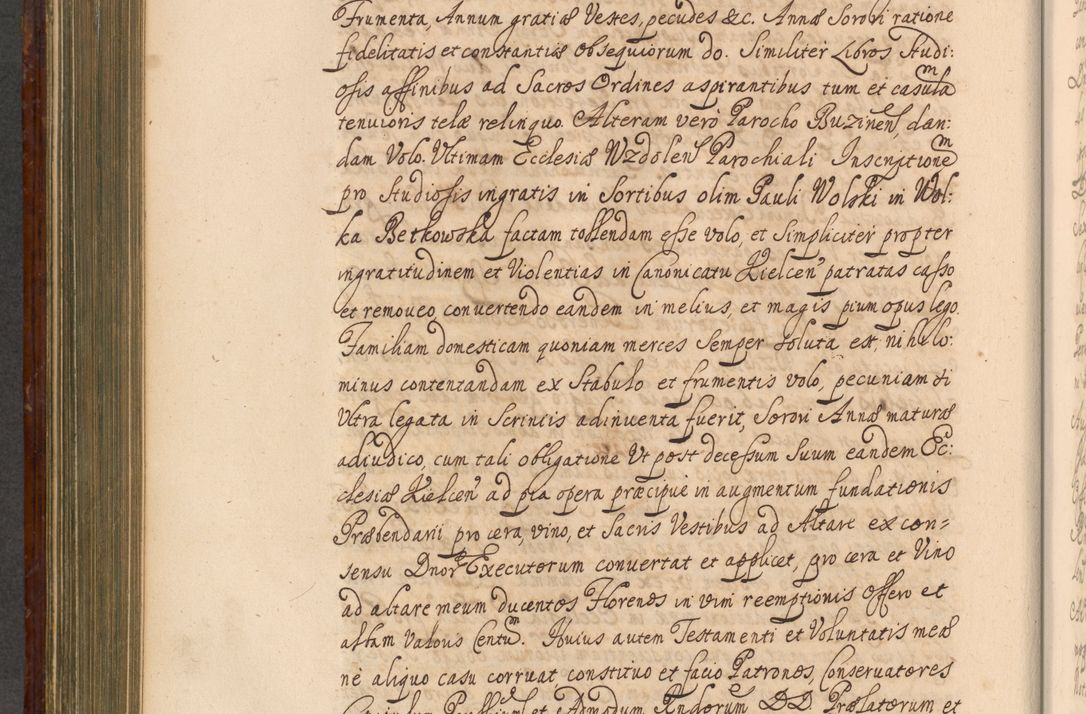 Frumenta, Annum gratiæ Vestes, pecudes &c. Annæ Sorori ratione
fidelitatis et constantiæ obsequiorum do. Similiter Libros studi:
osis affinibus ad Sacros Ordines aspirantibus tum et casulam
tenuioris telæ relinquo. Alteram verò Parocho Buzinen, dan:
dam Volo. Ultimam Ecclesiæ Wzdolen Parochiali Inscriptionem
pro studiosis ingratis in Sortibus olim Pauli Wolski in Wol:
ka Betkowska factam tollendam esse volo, et Simpliciter propter
ingratitudinem et Violentias in Canonicatu Kielcen patratas casso
et removeo, convertendo eandem in melius, et magis pium opus lego.
Familiam domesticam quoniam merces Semper soluta est, nihilo:
minus contentandam ex Stabulo et frumentis volo, pecuniam si
Ultra legata in Scriniis adinventa fuerit, Sorori Annæ maturæ
adiudico, cum tali obligatione Ut post decessum Suum eandem Ec:
clesiæ Kielcen ad pia opera præcipuè in augmentum fundationis
Præbendarii pro cera, vino, et Sacris Vestibus ad Altare ex con=
sensu Dnor Executorum convertat et applicet, pro cera et Vino
ad altare meum ducentos Florenos in vim reemptionis offero et
altam Valoris Centum. Huius autem Testamenti et Voluntatis meæ
ne aliquo casu corruat constituo et facio Patronos, Conservatores
et Admodum Rndorum DD Prælatorum et